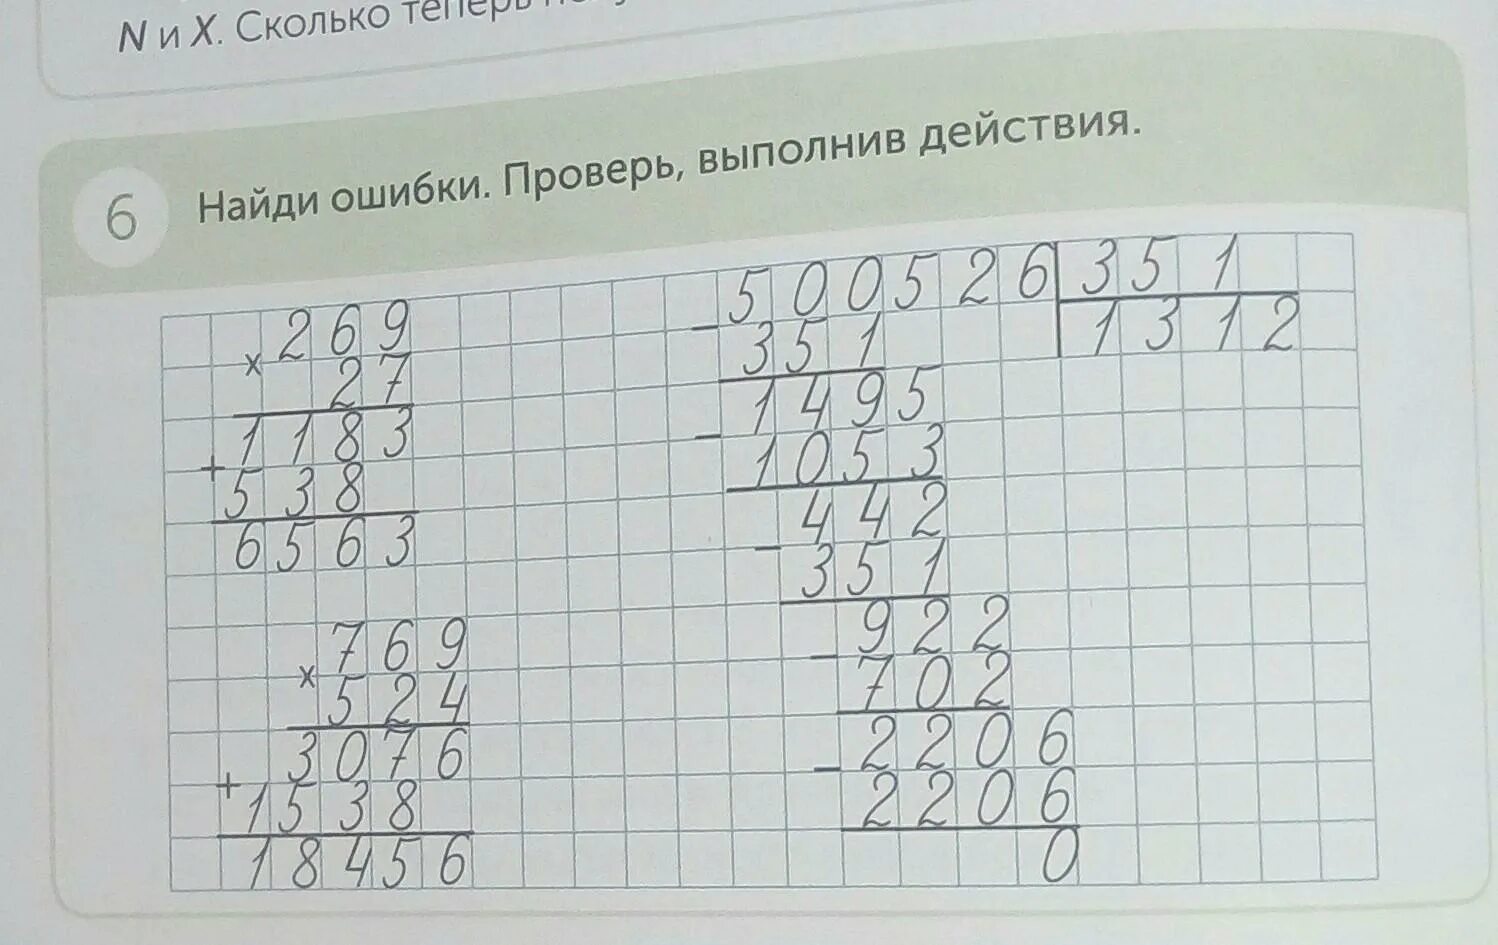 N и X. Сколько теперь
6
Найди ошибки. Проверь, выполнив действия.
× 269
27
+ 1183
538
6563
× 769
524
+ 3076
1538
18456
− 500526 351
351 1312
− 1495
1053
− 442
351
− 922
702
− 2206
2206
0